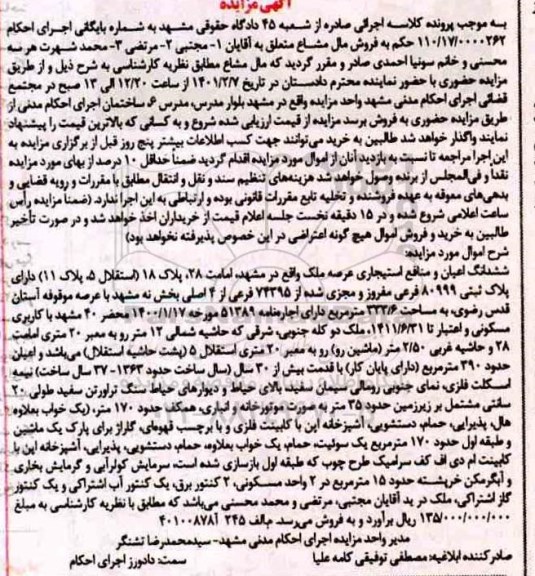 آگهی مزایده
به موجب پرونده کلاسه اجرائی صادره از شعبه ۴۵ دادگاه حقوقی مشهد به شماره بایگانی اجرای احکام
۱۱۰/۱۷/۰۰۰۰۲۶۲ حکم به فروش مال مشاع متعلق به آقایان ۱- مجتبی ۲- مرتضی ۳- محمد شهرت هر سه
محسنی و خانم سونیا احمدی صادر و مقرر گردید که مال مشاع مطابق نظریه کارشناسی به شرح ذیل و از طریق
مزایده حضوری با حضور نماینده محترم دادستان در تاریخ ۱۴۰۱/۲/۷ از ساعت ۱۲/۲۰ الی ۱۳ صبح در مجتمع
قضائی اجرای احکام مدنی مشهد واحد مزایده واقع در مشهد بلوار مدرس، مدرس ۶، ساختمان اجرای احکام مدنی از
طریق مزایده حضوری به فروش برسد مزایده از قیمت ارزیابی شده شروع و به کسانی که بالاترین قیمت را پیشنهاد
نمایند واگذار خواهد شد طالبین به خرید می‌توانند جهت کسب اطلاعات بیشتر پنج روز قبل از برگزاری مزایده به
این اجرا مراجعه تا نسبت به بازدید آنان از اموال مورد مزایده اقدام گردید ضمناً حداقل ۱۰ درصد از بهای مورد مزایده
نقدا و فی‌المجلس از برنده وصول خواهد شد هزینه‌های تنظیم سند و نقل و انتقال مطابق با مقررات و رویه قضایی و
بدهی‌های معوقه به عهده فروشنده و تخلیه تابع مقررات قانونی بوده و ارتباطی به این اجرا ندارد. (ضمنا مزایده رأس
ساعت اعلامی شروع شده و در ۱۵ دقیقه نخست جلسه اعلام قیمت از خریداران اخذ خواهد شد و در صورت تأخیر
طالبین به خرید و فروش اموال هیچ گونه اعتراضی در این خصوص پذیرفته نخواهد بود)
شرح اموال مورد مزایده:
ششدانگ اعیان و منافع استیجاری عرصه ملک واقع در مشهد، امامت ۲۸، پلاک ۱۸ (استقلال ۵، پلاک ۱۱) دارای
پلاک ثبتی ۸۰۹۹۹ فرعی مفروز و مجزی شده از ۷۴۳۹۵ فرعی از ۴ اصلی بخش نه مشهد با عرصه موقوفه آستان
قدس رضوی، به مساحت ۳۳۲/۶ مترمربع دارای اجاره‌نامه ۵۱۳۸۹ مورخه ۱۴۰۰/۱/۱۷ محضر ۴۰ مشهد با کاربری
مسکونی و اعتبار تا ۱۴۱۱/۶/۳۱، ملک دو کله جنوبی، شرقی که حاشیه شمالی ۱۲ متر رو به معبر ۲۰ متری امامت
۲۸ و حاشیه غربی ۲/۵۰ متر (ماشین رو) رو به معبر ۲۰ متری استقلال ۵ (پشت حاشیه استقلال) می‌باشد و اعیان
حدود ۳۹۰ مترمربع (دارای پایان کار) با قدمت بیش از ۳۰ سال (سال ساخت حدود ۱۳۶۳- ۳۷ سال ساخت) نیمه
اسکلت فلزی، نمای جنوبی رومالی سیمان سفید، بالای حیاط و دیوارهای حیاط سنگ تراورتن سفید طولی ۲۰
سانتی مشتمل بر زیرزمین حدود ۳۵ متر به صورت موتورخانه و انباری، همکف حدود ۱۷۰ متر، (یک خواب بعلاوه
هال، پذیرایی، حمام، دستشویی، آشپزخانه اپن با کابینت فلزی و با برچسب قهوه‌ای، گاراژ برای پارک یک ماشین
و طبقه اول حدود ۱۷۰ مترمربع یک سوئیت، حمام، یک خواب بعلاوه، حمام، دستشویی، پذیرایی، آشپزخانه اپن با
کابینت ام دی اف کف سرامیک طرح چوب که طبقه اول بازسازی شده است، سرمایش کولرآبی و گرمایش بخاری
و آبگرمکن خرپشته حدود ۱۵ مترمربع در ۲ واحد مسکونی، ۲ کنتور برق، یک کنتور آب اشتراکی و یک کنتور
گاز اشتراکی، ملک در ید آقایان مجتبی، مرتضی و محمد محسنی می‌باشد که مطابق با نظریه کارشناسی به مبلغ
۱۳۵/۰۰۰/۰۰۰/۰۰۰ ریال برآورد و به فروش می‌رسد. م‌الف ۲۴۵ آ۴۰۱۰۰۸۷۸
مدیر واحد مزایده اجرای احکام مدنی مشهد- سیدمحمدرضا تشنگر
صادرکننده ابلاغیه: مصطفی توفیقی کامه علیا سمت: دادورز اجرای احکام